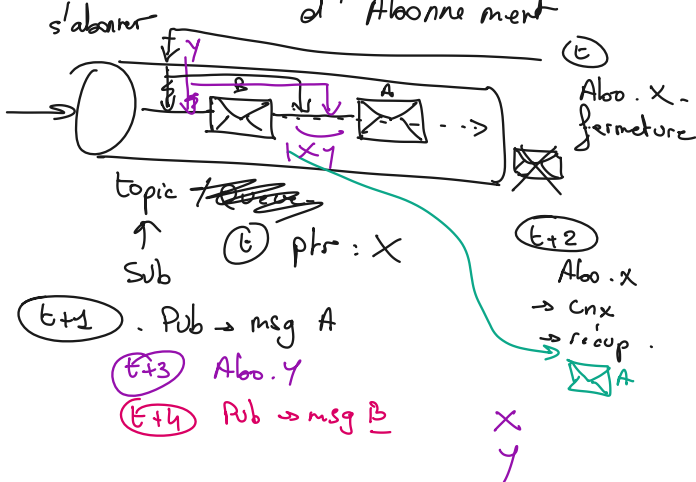 s'abonner
d'Abonnement
t
Y
B
A
Abo. X -
fermeture
1 X Y
topic / Queue
t
ptr : X
t+2
Sub
Abo. x
→ cnx
→ récup.
A
t+1 . Pub → msg A
t+3 Abo. Y
t+4 Pub → msg B
X
Y